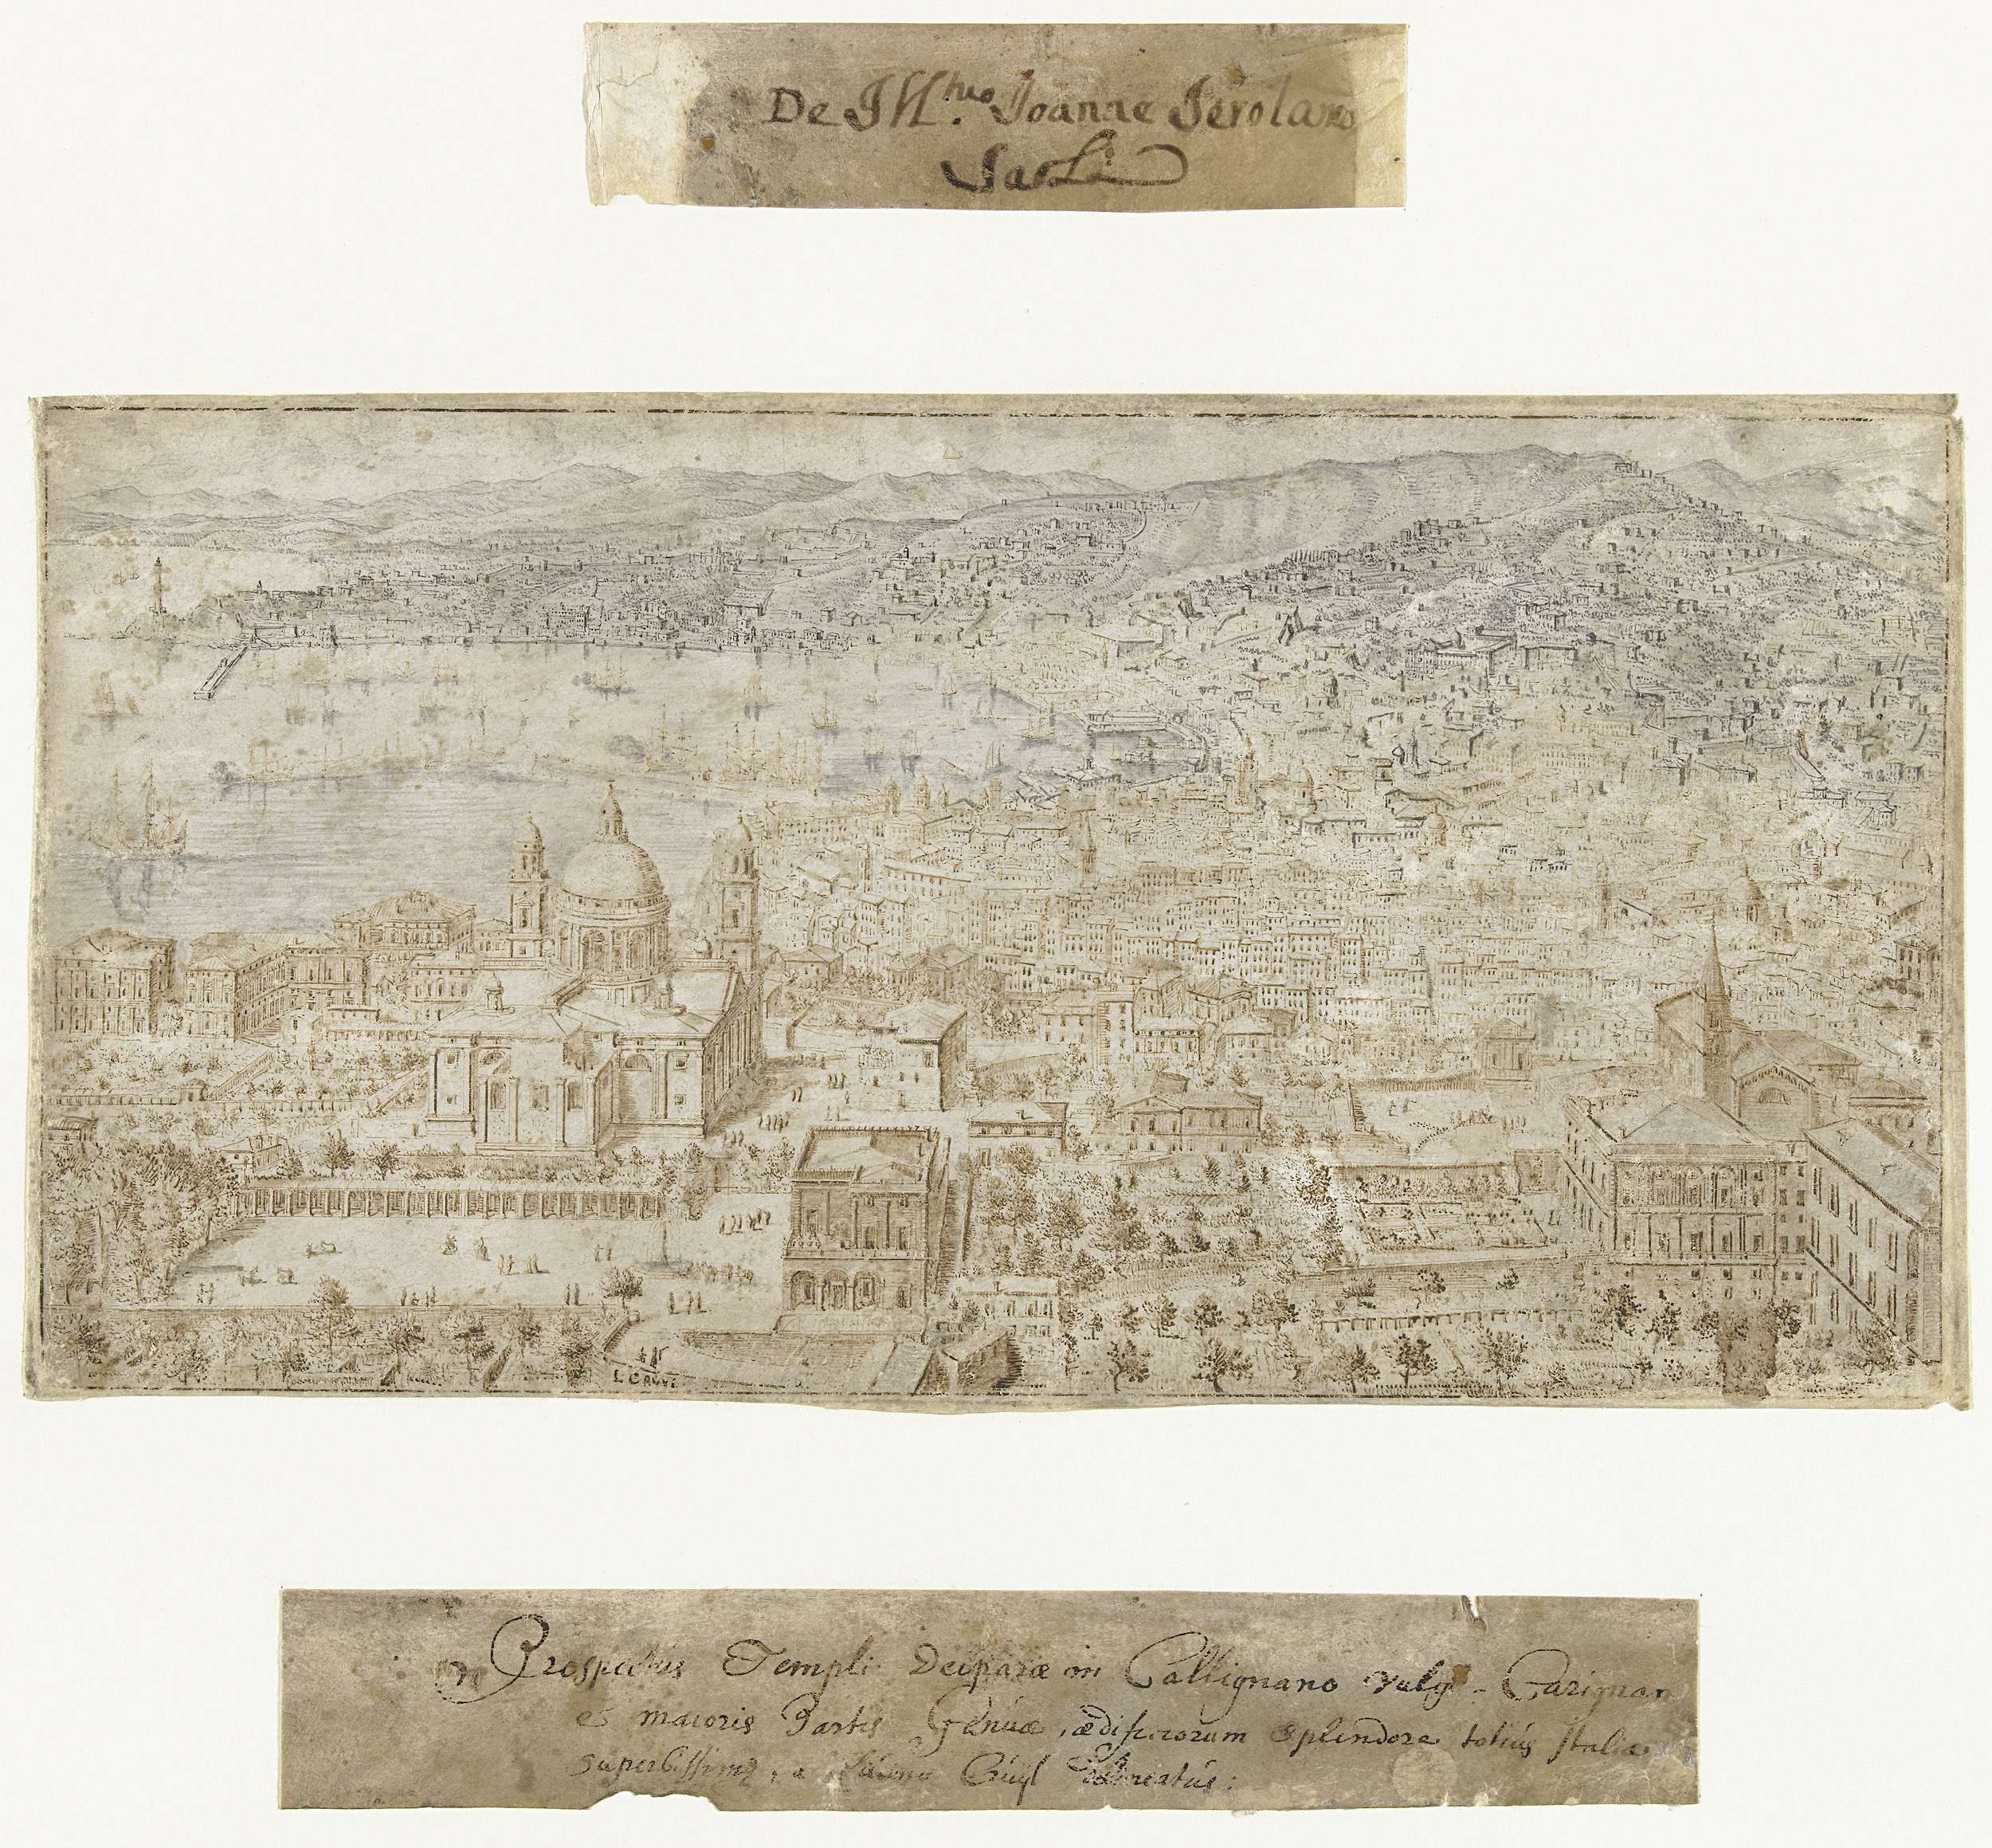 De Ill.<sup>mo</sup> Joanne Jerolamo
Sauli
L CRUYL
Prospectus Templi Deiparæ in Callignano vulgo - Carignan
et maioris Partis Genuæ, ædificiorum splendore totius Italiæ
superbissimæ, a Lævino Cruyl delineatus: